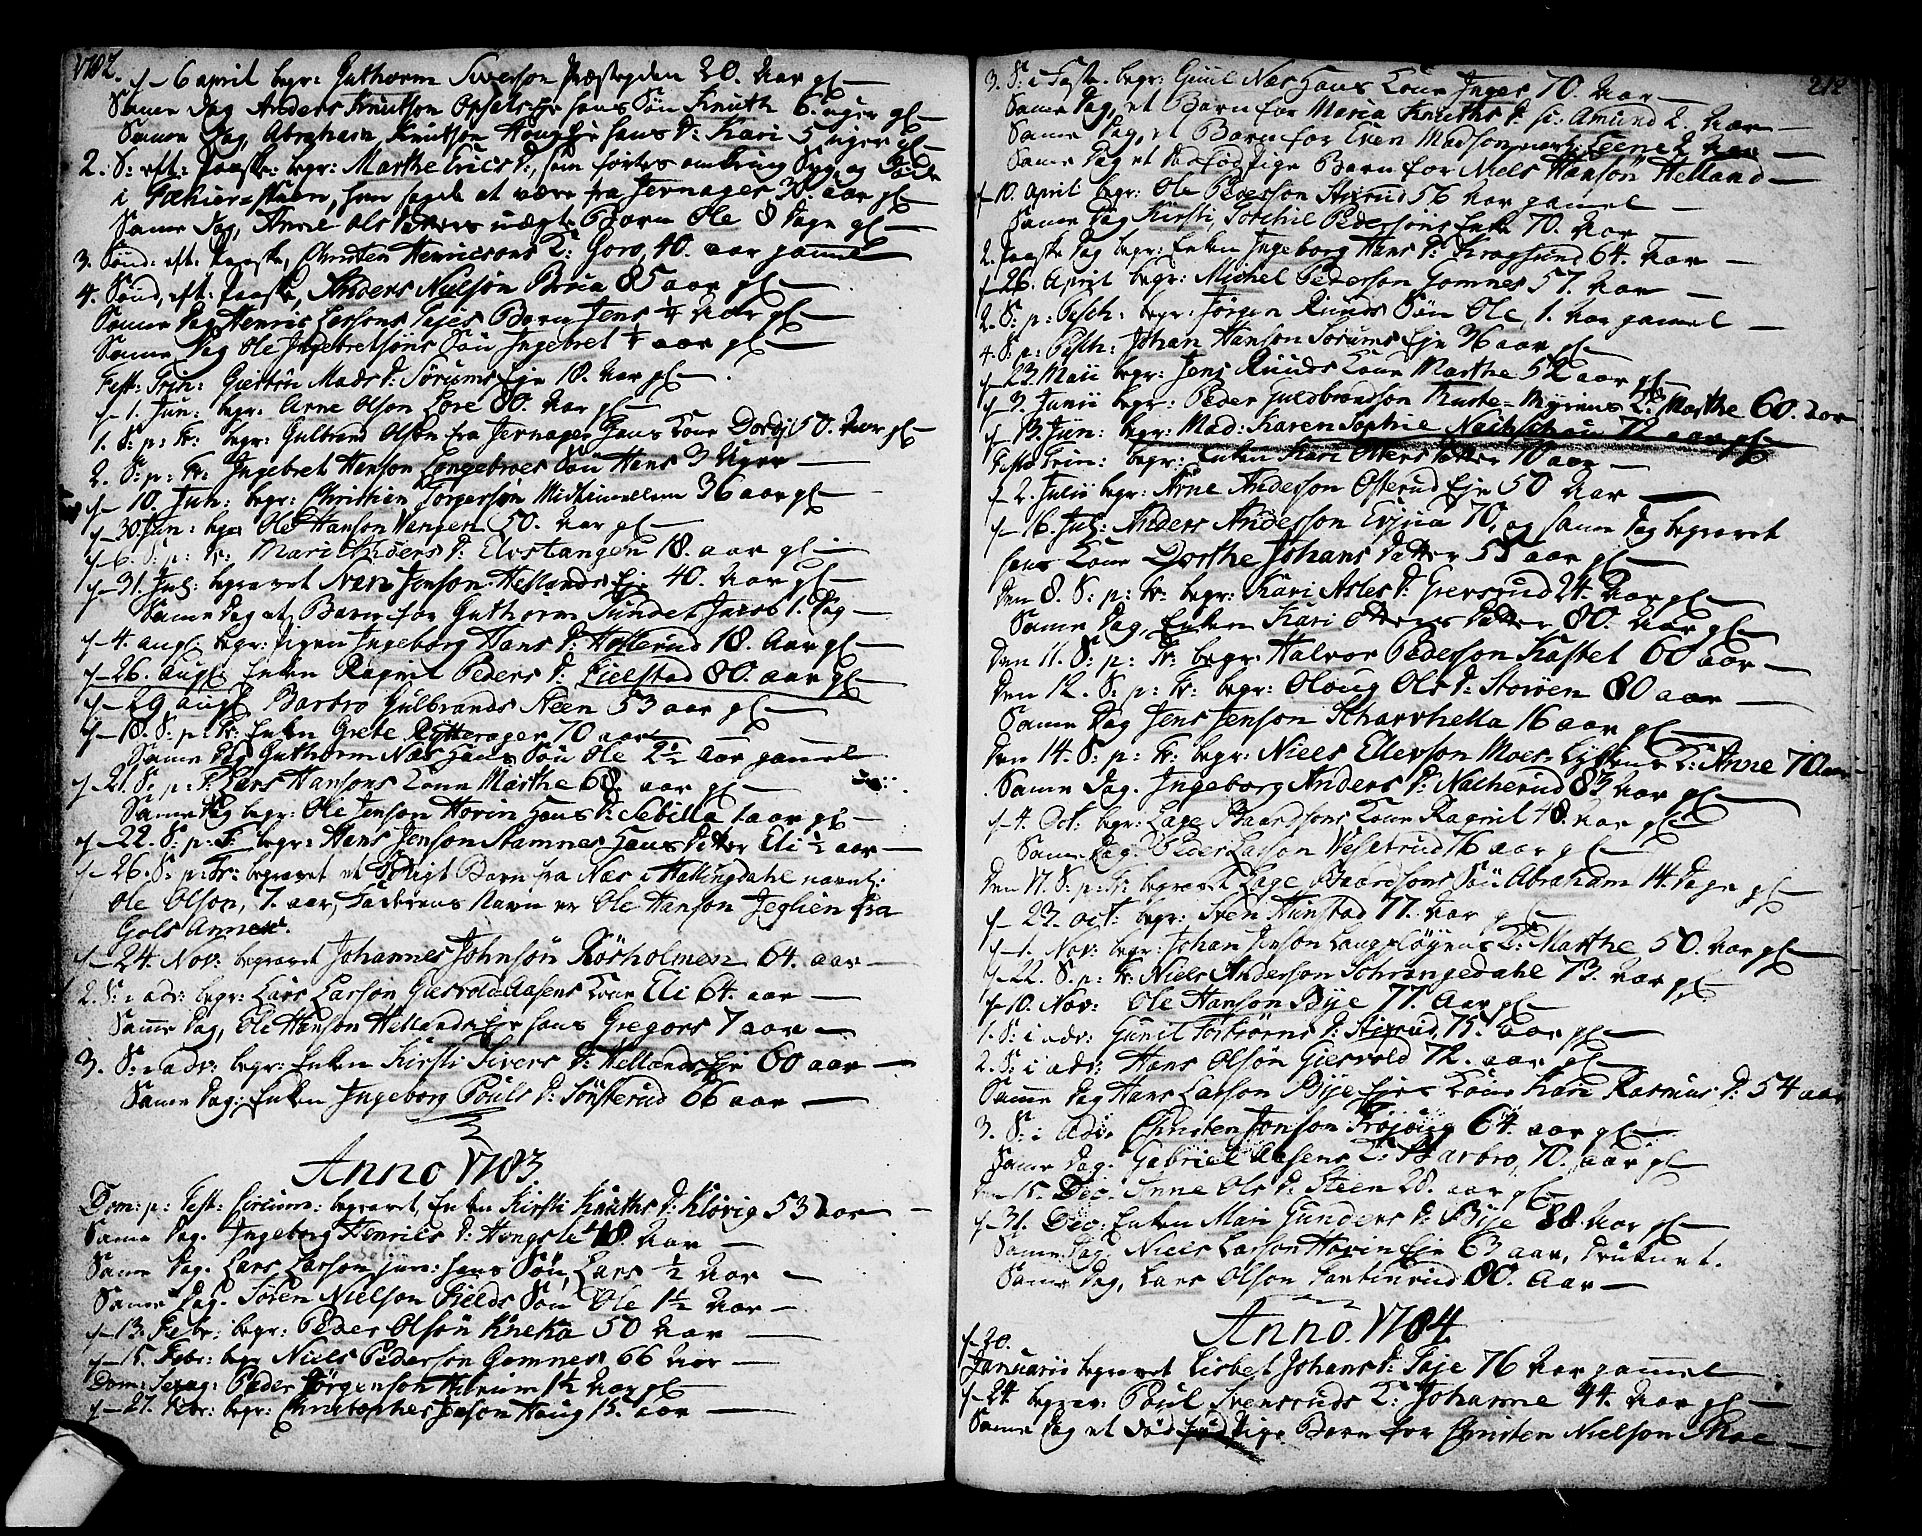 1782.
d- 6 april begr: Guthorm Siverson Præstegden 20. Aar gl
Same Dag Anders Knutson Opsals Eje hans Søn Knuth 6 uger gl
Same Dag, Abraham Knutson Houg Eje hans D: Kari 5 uger gl
2. S: eft: Paaske: begr: Marthe Erics D:, som førtes omkring Syg, og døde
i hun sagde at være fra Jernager, 30. aar gl
Same Dag, Anne Ols Datters uægte Barn Ole 8 Dage gl
3. Sønd: eft: Paaske, Christen Henricsons K: Goro, 40. aar gammel
4. Sønd, eft: Paaske, Anders Nielsøn Bria 85 aar gl
Same Dag Henric Larsons Barn Jens 1/4 Aar gl
Same Dag Ole Ingebretsøns Søn Ingebret 1/4 aar gl
Fest: Trin: Mads D: Sørums Eje 18. Aar gl
d- 1. Jun: begr: Arne Olson Lore 80. Aar gl
1. S: p: Tr: begr: Gulbrand Olsøn fra Jernager hans Kone Dorthe 50. Aar gl
2. S: p: Tr: Ingebret Hanson Søn Hans 3 Uger
d- 10. Jun: begr: Christen Torgersøn 36 aar gl
d- 30. Jun: begr Ole Hanson Vangen 50. Aar gl
d- 6. S: p: Tr: Mari Anders D: Elvstangen 18. aar gl
d- 31. Jul: begravet Iver Jonson Hellands Eje 40. Aar gl
Same Dag et Barn for Guthorm Sundet Jacob 1. Dag
d- 4. aug begr: Pigen Ingeborg Hans D: Hollerud 18. Aar gl
d- 26. aug Enken Ragnil Peders D: Fielstad 80. aar gl
d- 29 aug Barbro Gulbrands Steen 53 aar gl
d- 18. S: p: Tr: Enken Grete Rytterager 70 aar
Same Dag Guthorm Næs hans Søn Ole 2 1/2 Aar gammel
d- 21. S: p: Tr: Lars Hansons Kone Marthe 68. aar gl
Same Dag begr: Ole Jenson Hovin hans D: Sebilla 1 aar gl
d- 22. S: p: Tr: begr: Hans Jenson Stamnes hans Datter Eli 1/2 aar
d- 26. S: p: Tr: begravet et Barn fra Næs i Hallingdahl navnl:
Ole Olson, 7. aar, Faderens Navn er Ole Hanson Jeglien fra
Gols Annex.
d- 24. Nov: begravet Johannes Johnsøn Rørholmen 64. aar
2. S: i adv: begr: Lars Larson Kone Eli 64. aar
Same Dag, Ole Hanson Hellands Eje hans Gregors 7 aar
3. S: i adv: begr: Enken Kirsti Sivers D: Hellands Eje 60 aar
Same Dag: Enken Ingeborg Pouls D: Sønsterud 66 aar
Anno 1783.
Dom: p: Fest: Circum: begravet, Enken Kirsti Knuths D: Kløvig 53 Aar
Same Dag. Ingeborg Henrics D: Hongsle 40. Aar
Same Dag. Lars Larson jun: hans Søn Lars 1/2 Aar
Same Dag. Søren Nielson Fields Søn Ole 1 1/2 Aar
d- 13. Febr: begr: Peder Olsøn Kneka 50 Aar
d- 15. Febr: beg Niels Pederson Gomnes 66 Aar
Dom: Sexag: Peder Jørgenson 1 1/2 Aar gl
d- 27. Febr: begr: Christopher Jenson Houg 15. aar
212
3. S: i Faste begr: Guul Næs hans Kone Inger 70. Aar
Same Dag, et Barn for Maria Knuths D: Amund 2. Aar
Same Dag, et Barn for Even Madson navnl: Leene 2 Aar
Same Dag et dødfød Pige Barn for Niels Hanson Helland
d- 10. April begr: Ole Pederson Stixrud 56 Aar gamel
Same Dag Kirsti, Torchil Pedersøns Enke 70. Aar
2. Paaske Dag begr: Enken Ingeborg Hans D: Krogsund 64. Aar
d- 26. April begr: Michel Pederson Gomnes 57. Aar
2. S: p: Pasch: begr: Jørgen Ruuds Søn Ole, 1. Aar gamel
4. S: p: Pasch: Johan Hanson Sørums Eje 36 aar gl
d- 23. Maii begr: Jens Ruuds Kone Marthe 52 aar gl
d- 3. Junii begr: Peder Guldbrandson K: Marthe 60. Aar
d- 13. Jun: begr: Mad: Karen Sophie 72 aar gl
Festo Trin: begr: Enken Kari Ottersdatter 70 aar
d- 2. Julii begr: Arne Anderson Osterud Eje 50 Aar
d- 16. Jul: Anders Anderson Evjua 70, og same Dag begravet
hans Kone Dorthe Johans Datter 55 aar gl
den 8. S: p: Tr: begr: Kari Asles D: Gresrud 24. Aar gl
Same Dag, Enken Kari Otters Datter 80. Aar gl
den 11. S: p: Tr: begr: Halvor Pederson Kastet 60 aar
den 12. S: p: Tr: begr: Oloug Ols D: Storøen 80 aar
Same Dag Jens Jenson Scharvhella 16 aar gl
den 14. S: p: Tr: begr: Niels Ellevson Moes K: Anne 70 aar
Same Dag. Ingeborg Anders D: Nacherud 83 Aar gl
d- 4. Oct: begr: Lage Baardsons Kone Ragnil 48. Aar gl
Same Dag. Peder Larson Veselrud 76 aar gl
den 17. S: p: Tr: begravet Lage Baardsons Søn Abraham 14. Dage gl
d- 23. oct: begr: Sten Hunstad 77. Aar gl
d- 1. Nov: begr: Johan Jenson K: Marthe 50. Aar gl
d- 22. S: p: Tr: Niels Anderson Schrangedahl 73. Aar gl
d- 10. Nov: Ole Hanson Bye 77. Aar gl
1. S: i adv: Gunil Torbiørns D: Stixrud, 75. Aar gl
2. S: i adv: Hans Olsøn Giesvold 72. aar gl
Same Dag Hans Larson Bye Ejes Kone Kari Rasmus D: 54 aar
3. S: i Adv. Christen Jonson Frøjøug 64. aar gl
Same Dag. Gabriel Aasens K: Barbro, 70. aar gl
den 15. Dec. Anne Ols D: Steen 28. aar gl
d- 31. Dec: Enken Mari Gunders D: Bye 88. Aar gl
Same Dag: Niels Larson Hovin Eje 63 aar, druknet.
Same Dag, Lars Olson 80. Aar
Anno 1784.
d- 20.
Januarii begravet Lisbet Johans D: 76 Aar gammel
d- 24 begrav: Poul Svensruds K: Johanne 44. Aar gl
Same Dag et død fød Pige Barn for Christen Nielson Moe